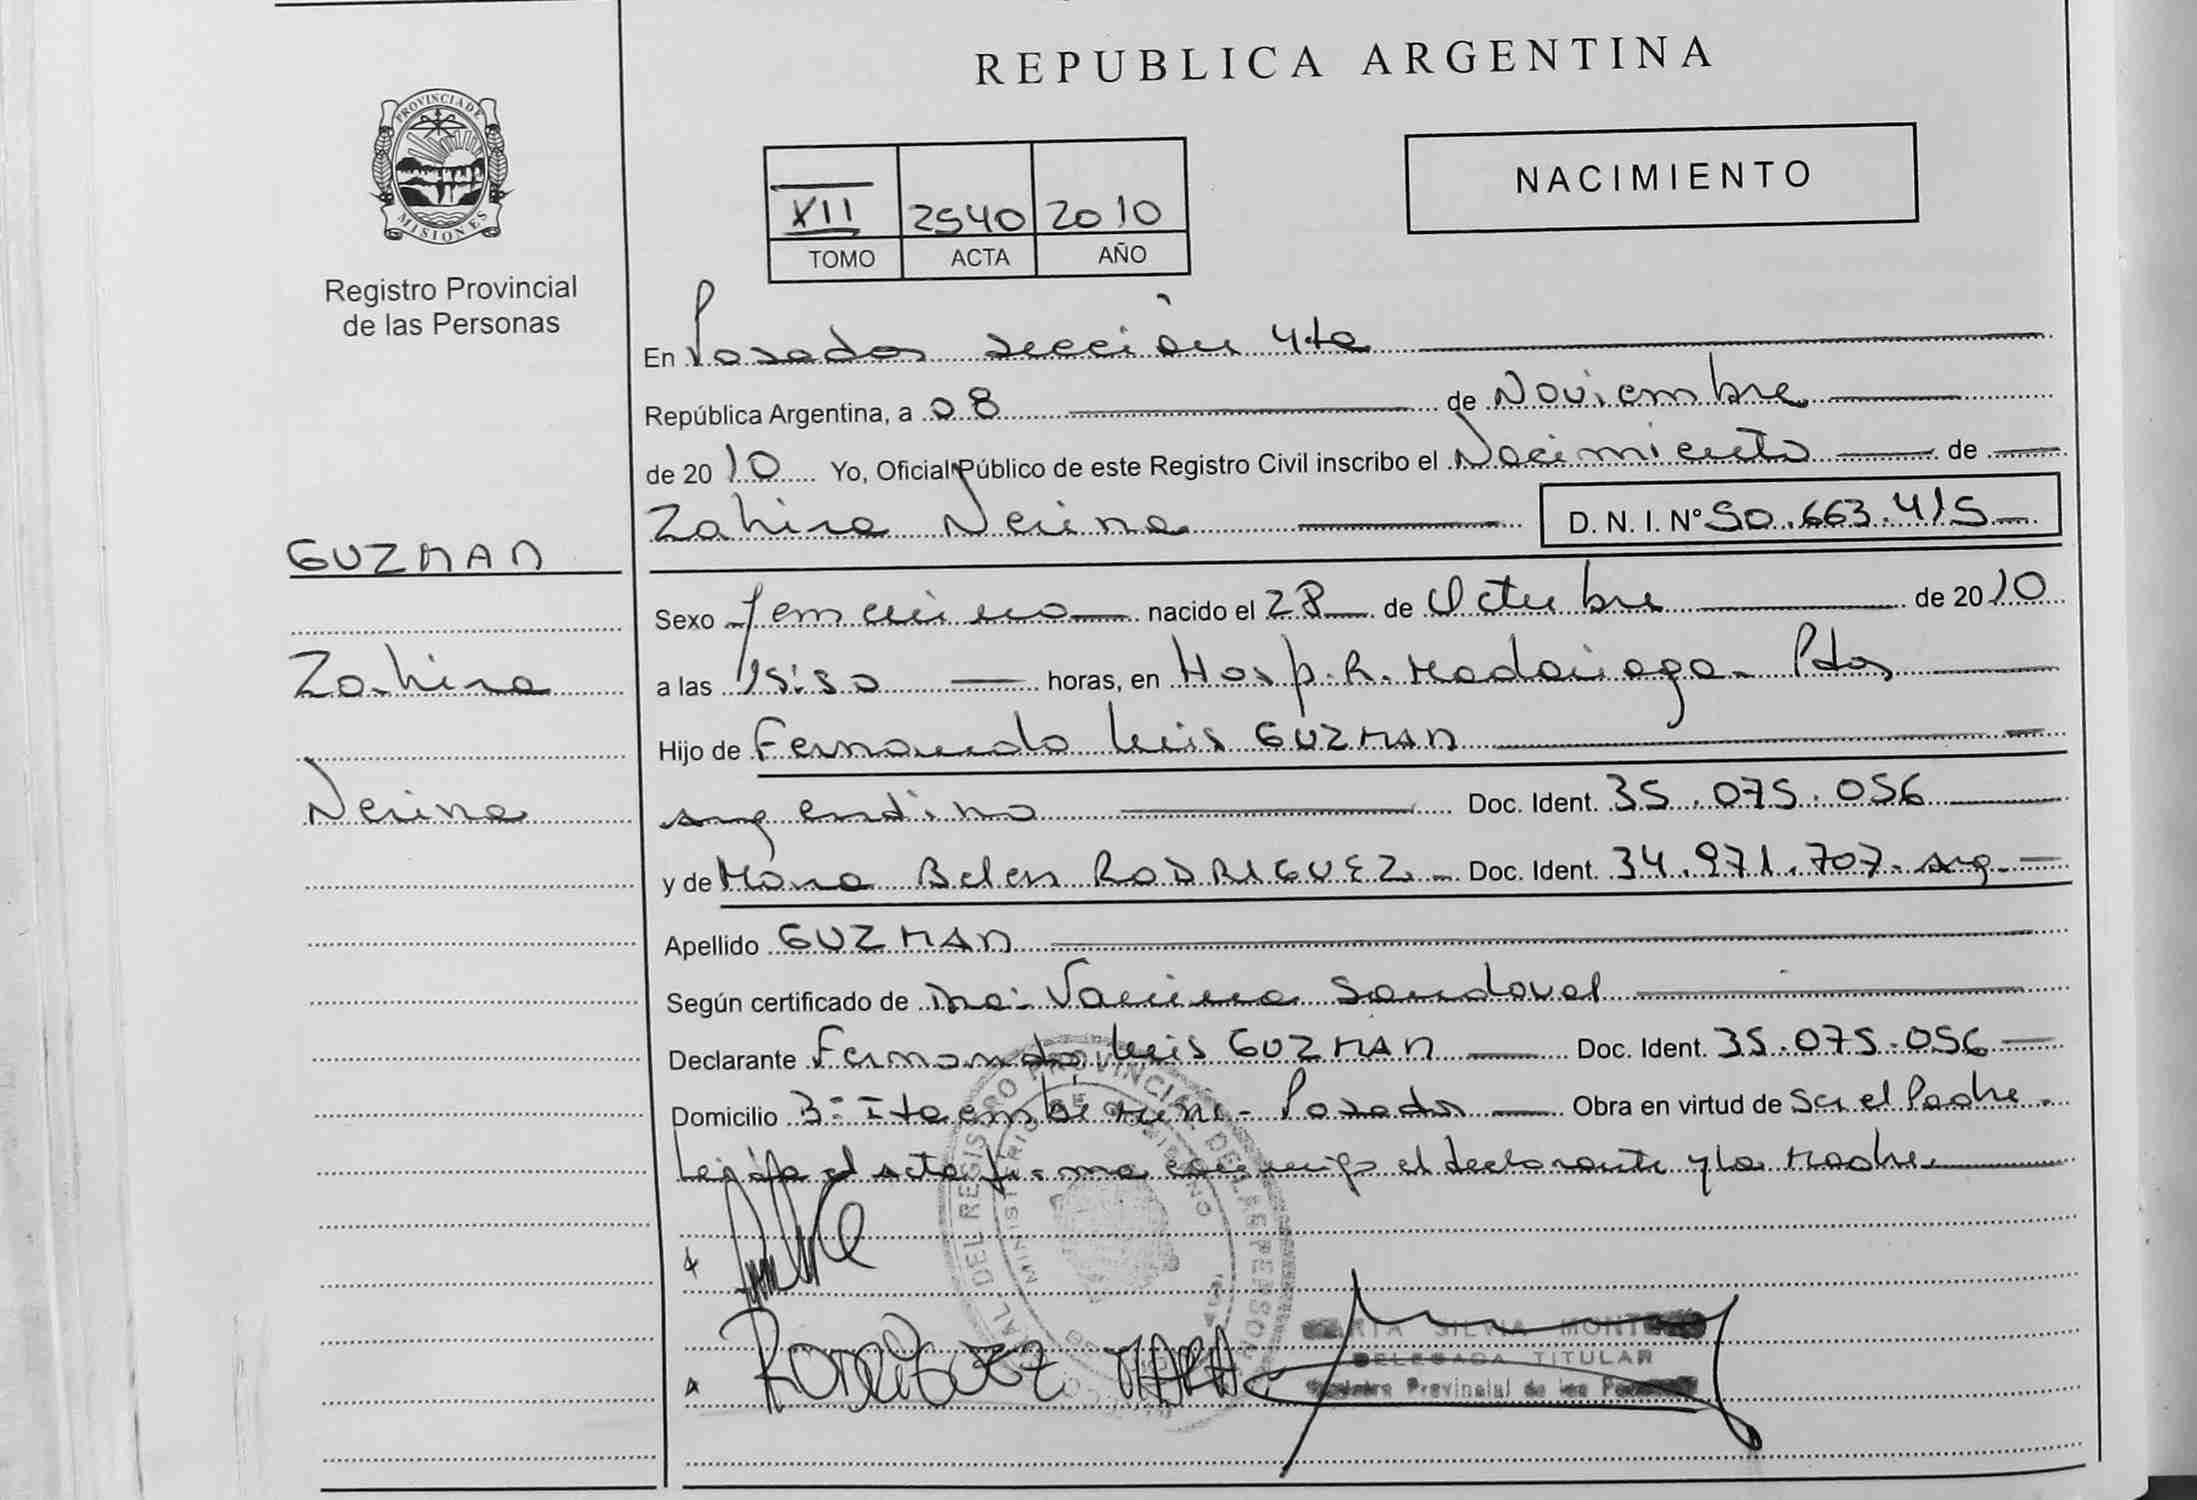 REPUBLICA ARGENTINA
PROVINCIA DE
MISIONES
Registro Provincial
de las Personas
NACIMIENTO
XII 2540 2010
TOMO ACTA AÑO
En Posadas sección 4ta
República Argentina, a 08 de Noviembre
de 2010 Yo, Oficial Público de este Registro Civil inscribo el Nacimiento de
Zahira Nerina D. N. I. N° 50.663.415
GUZMAN
Zahira
Nerina
Sexo femenino nacido el 28 de Octubre de 2010
a las horas, en Hosp. R. Madariaga - Pdas
Hijo de Fernando Luis GUZMAN
argentino Doc. Ident. 35.075.056
y de Belen RODRIGUEZ Doc. Ident. 34.971.707. arg.
Apellido GUZMAN
Según certificado de Vanina Sandoval
Declarante Fernando Luis GUZMAN Doc. Ident. 35.075.056
Domicilio Posadas Obra en virtud de Ser el Padre.
Leída el acta firma conmigo el declarante y la Madre.
REGISTRO PROVINCIAL DE LAS PERSONAS
RODRIGUEZ MARA
SILVIA
DELEGADA TITULAR
Registro Provincial de las